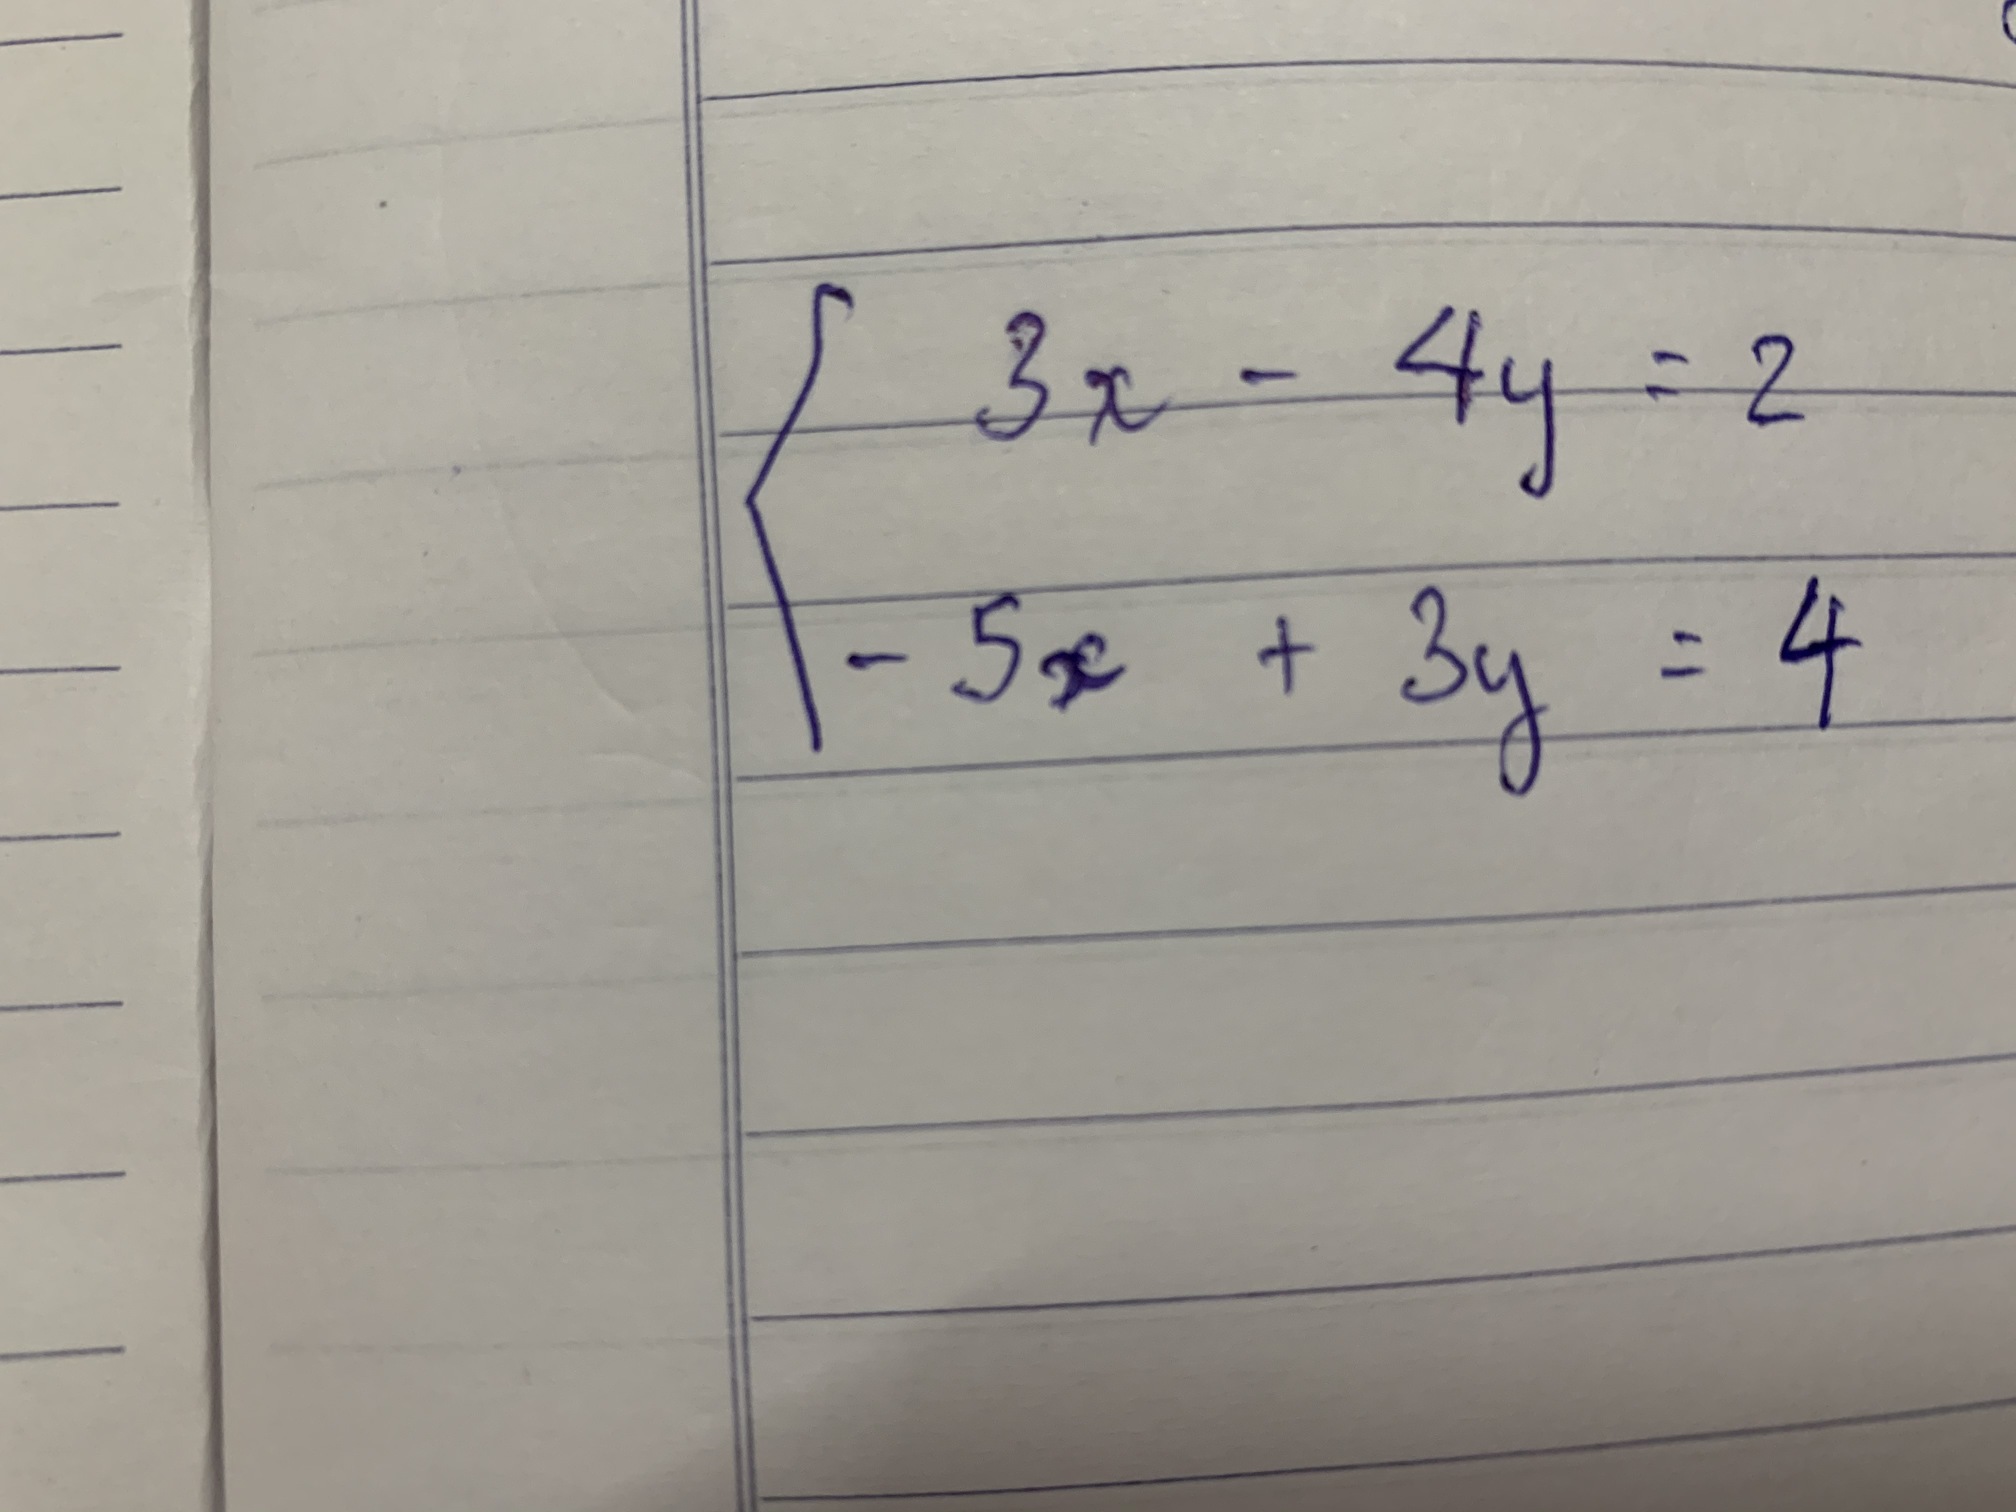 3x - 4y = 2
- 5x + 3y = 4